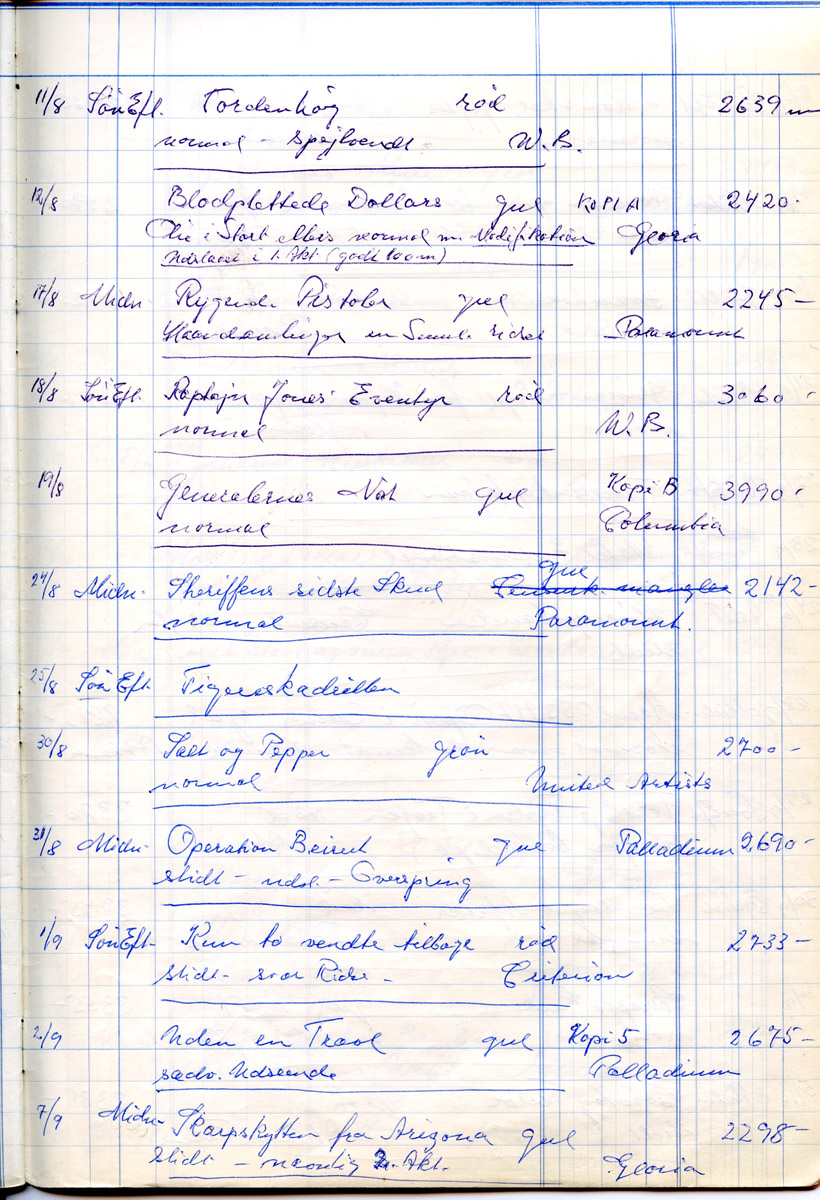 11/8 SønEft. Tordenhøg rød 2639 m
normal - spejlvendt W.B.
12/8 Blodplettede Dollars gul KOPI A 2420.
Olie i Start ellers normal m. Modifikation Gloria
i 1. Akt (godt 100 m)
17/8 Midn. Rygende Pistoler gul 2245 -
en Saml. ridset Paramount
18/8 SønEft. Kaptajn Jones' Eventyr rød 3060 -
normal W.B.
19/8 Generalernes Nat gul Kopi B 3990 -
normal Columbia
gul
24/8 Midn. Sheriffens sidste Skud mangler 2142 -
normal Paramount.
25/8 Søn Eft. Tigereskadrillen
30/8 Salt og Pepper grøn 2700 -
normal United Artists
31/8 Midn. Operation Beirut gul Palladium 2,690 -
slidt - udsl. - Overspring
1/9 SønEft. Kun to vendte tilbage rød 2733 -
slidt - svær Ridse - Criterion
2/9 Uden en Trævl gul Kopi 5 2675 -
sædv. Udseende Palladium
7/9 Midn. Skarpskytten fra Arizona gul 2298 -
slidt - navnlig 2. Akt. Gloria